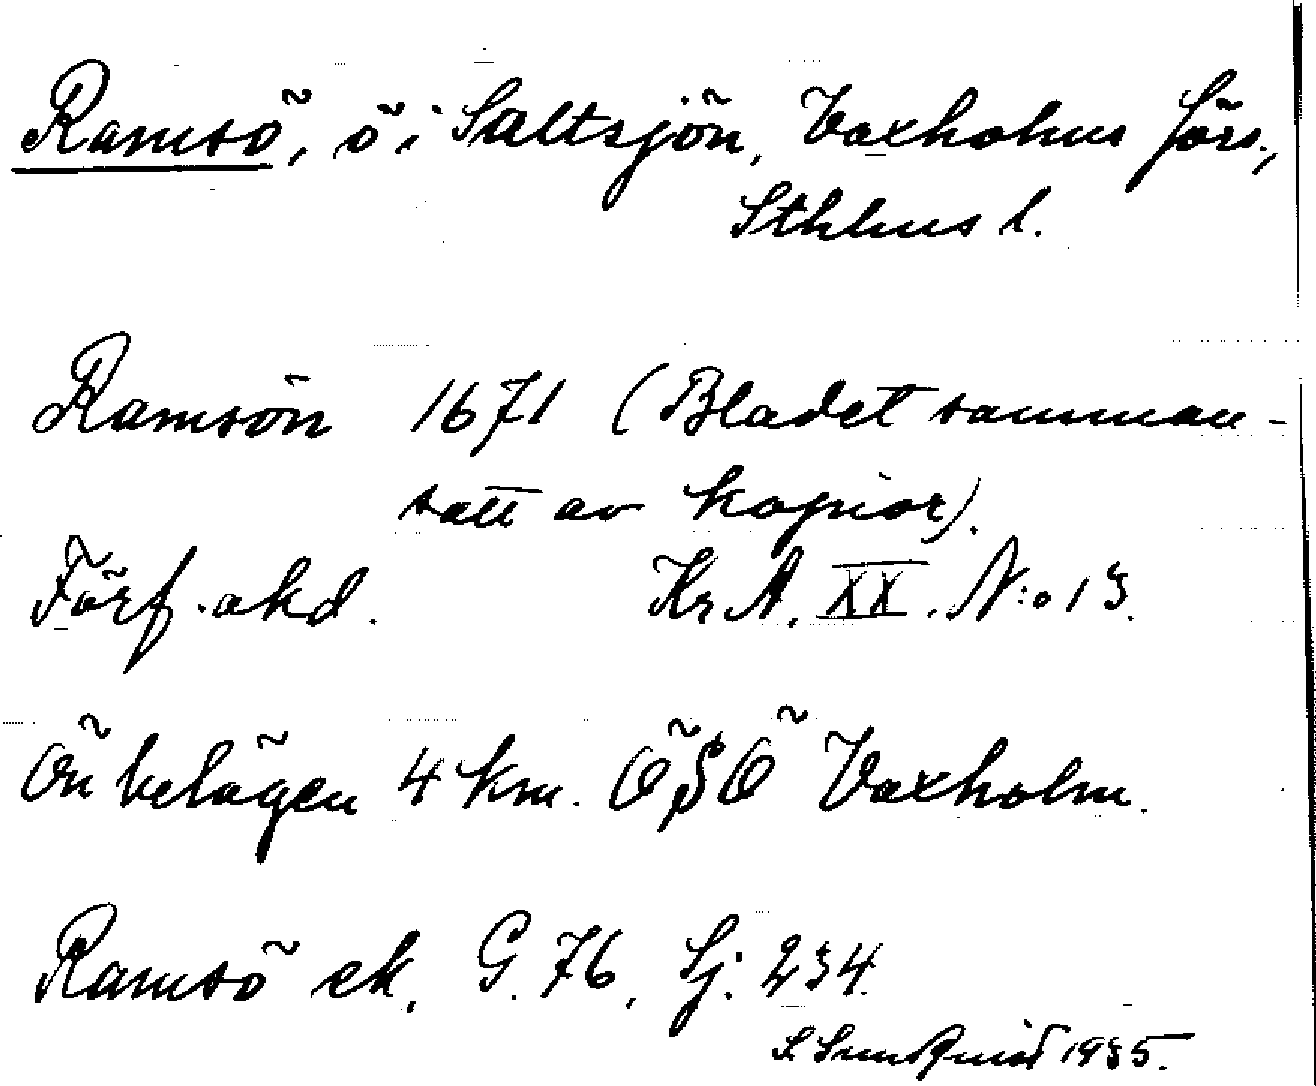 Ramsö, ö i Saltsjön, Vaxholms förs.,
Sthlms l.
Ramsön 1671 (Bladet samman-
satt av kopior).
Förf. okd. Kr A. XX. N:o 13.
Ön belägen 4 km. ÖSÖ Vaxholm.
Ramsö ek. G. 76. Sj: 234.
S. Sundqvist 1935.